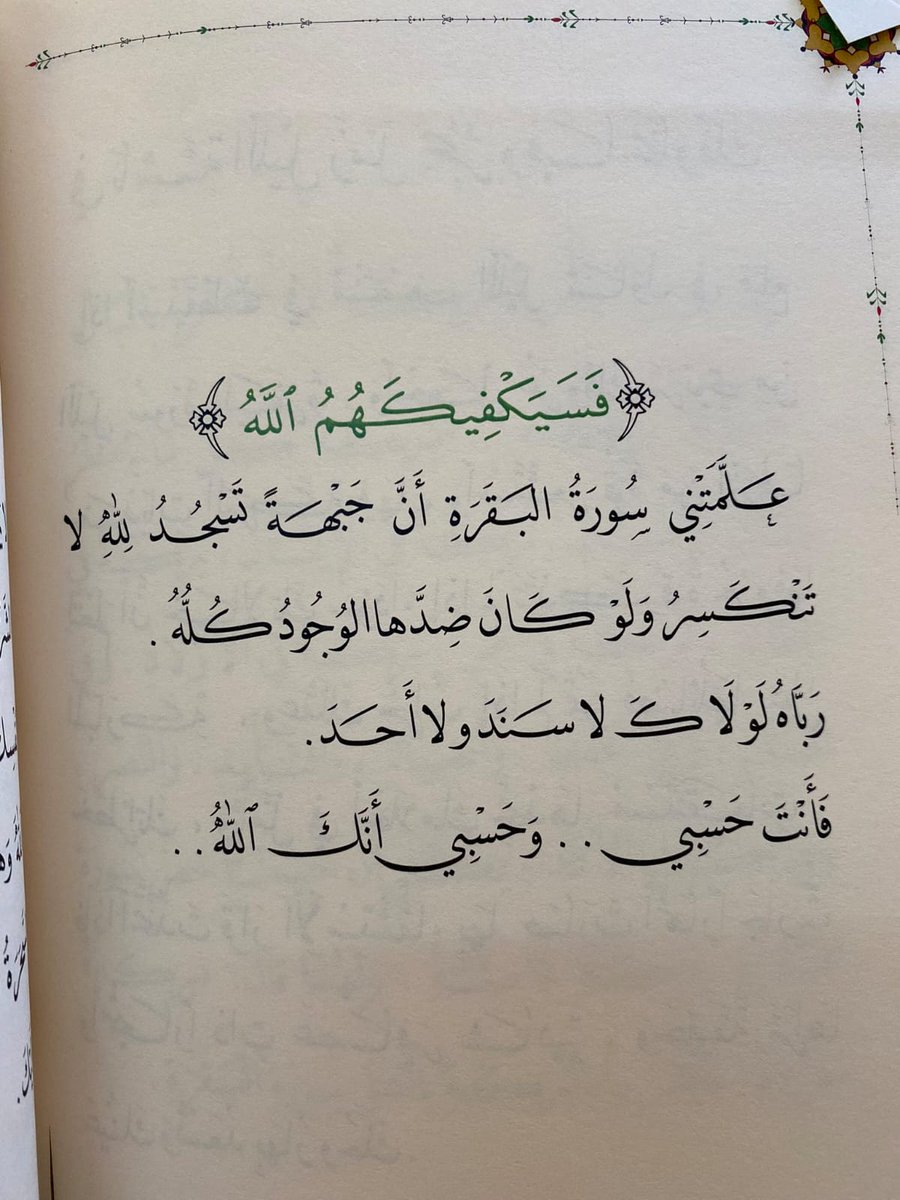 ﴿فَسَيَكْفِيكَهُمُ ٱللَّهُ﴾
عَلَّمَتْنِي سُورَةُ البَقَرَةِ أَنَّ جَبْهَةً تَسْجُدُ لِلّٰهِ لا
تَنْكَسِرُ وَلَوْ كَانَ ضِدَّها الوُجُودُ كُلُّهُ .
رَبَّاهُ لَوْلَاكَ لا سَنَدَ ولا أَحَدَ.
فَأَنْتَ حَسْبِي .. وَحَسْبِي أَنَّكَ ٱللّٰهُ ..